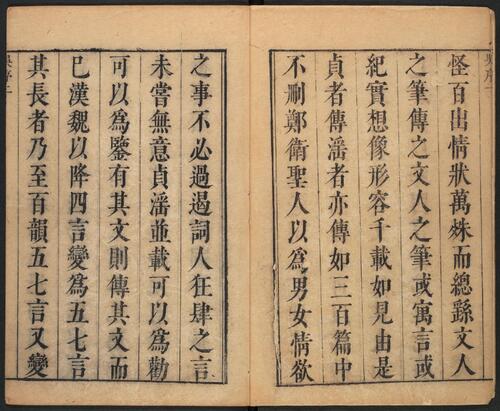 怪百出情狀萬殊而總繇文人
之筆傳之文人之筆或寓言或
紀實想像形容千載如見由是
貞者傳滛者亦傳如三百篇中
不刪鄭衛聖人以爲男女情欲
之事不必過遏詞人狂肆之言
未嘗無意貞滛並載可以爲勸
可以爲鑒有其文則傳其文而
已漢魏以降四言變爲五七言
其長者乃至百韻五七言又變